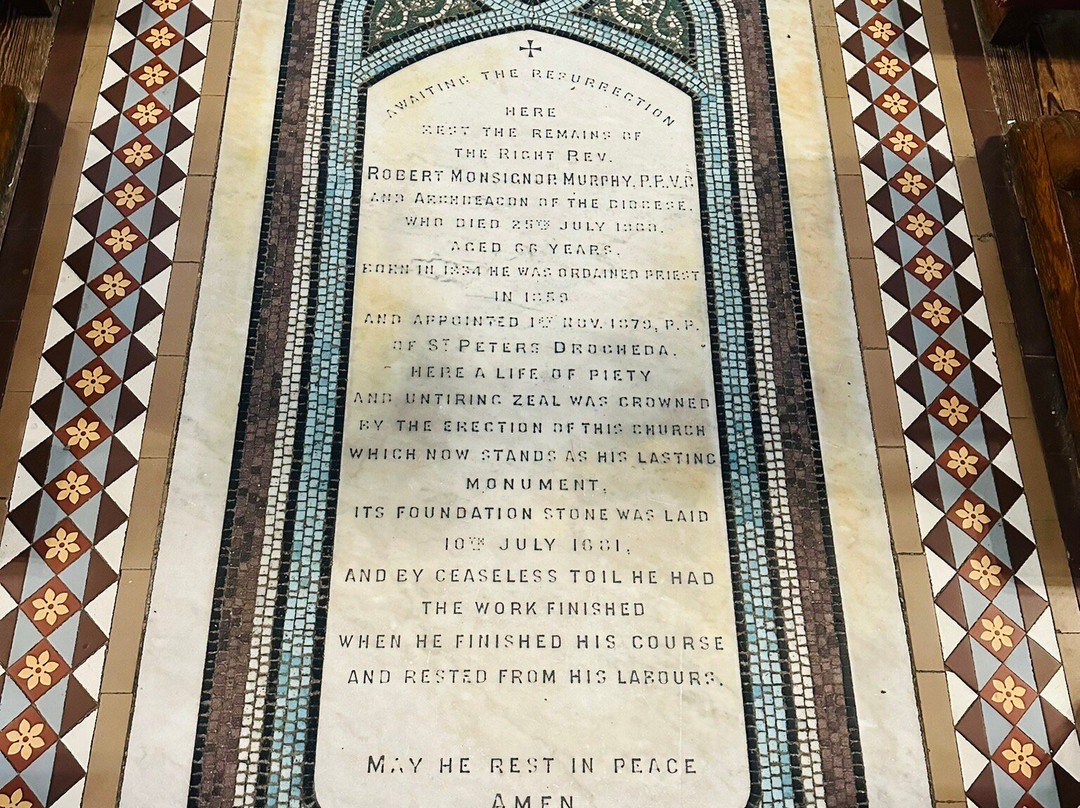 AWAITING THE RESURRECTION
HERE
REST THE REMAINS OF
THE RIGHT REV.
ROBERT MONSIGNOR MURPHY, P.P.V.G.
AND ARCHDEACON OF THE DIOCESE.
WHO DIED 25TH JULY 1900,
AGED 66 YEARS.
BORN IN 1834 HE WAS ORDAINED PRIEST
IN 1859
AND APPOINTED 1ST NOV. 1879, P.P.
OF ST PETERS DROGHEDA.
HERE A LIFE OF PIETY
AND UNTIRING ZEAL WAS CROWNED
BY THE ERECTION OF THIS CHURCH
WHICH NOW STANDS AS HIS LASTING
MONUMENT,
ITS FOUNDATION STONE WAS LAID
10TH JULY 1881,
AND BY CEASELESS TOIL HE HAD
THE WORK FINISHED
WHEN HE FINISHED HIS COURSE
AND RESTED FROM HIS LABOURS.
MAY HE REST IN PEACE
AMEN